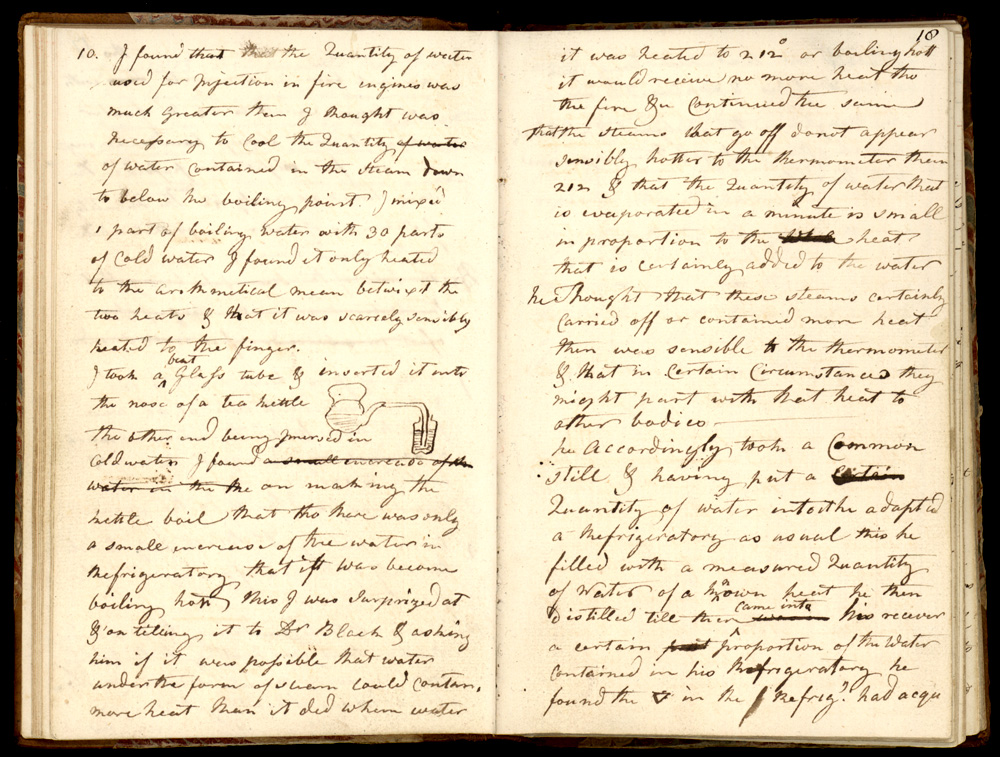 10. I found that the Quantity of water
used for Injection in fire engines was
much greater then I thought was
necessary to Cool the Quantity of water
of water contained in the steam down
to below the boiling point I mixed
1 part of boiling water with 30 parts
of Cold water I found it only heated
to the arithmetical mean betwixt the
two heats & that it was scarcely sensibly
heated to the finger.
I took a bent Glass tube & inserted it into
the nose of a tea kettle
the other end being imersed in
Cold water I found a small increase of the
water in the on making the
kettle boil that tho there was only
a small increase of the water in
Refrigeratory that it was become
boiling hot this I was Surprized at
& on telling it to Dr Black & asking
him if it was possible that water
under the form of steam could contain
more heat than it did when water
10
it was heated to 212° or boiling hott
it would receive no more heat tho
the fire &c Continued the same
that the steams that go off do not appear
sensibly hotter to the thermometer then
212 & that the Quantity of water that
is evaporated in a minute is small
in proportion to the whole heat
that is certainly added to the water
he thought that these steams certainly
carried off or contained more heat
then was sensible to the thermometer
& that in Certain Circumstances they
might part with that heat to
other bodies
he accordingly took a Common
still & having put a Certain
Quantity of water into it he adapted
a Refrigeratory as usual this he
filled with a measured Quantity
of Water of a known heat he then
distilled till ther came into his receiver
a certain proportion of the Water
contained in his Refrigeratory he
found the in the Refrig.r had acqu